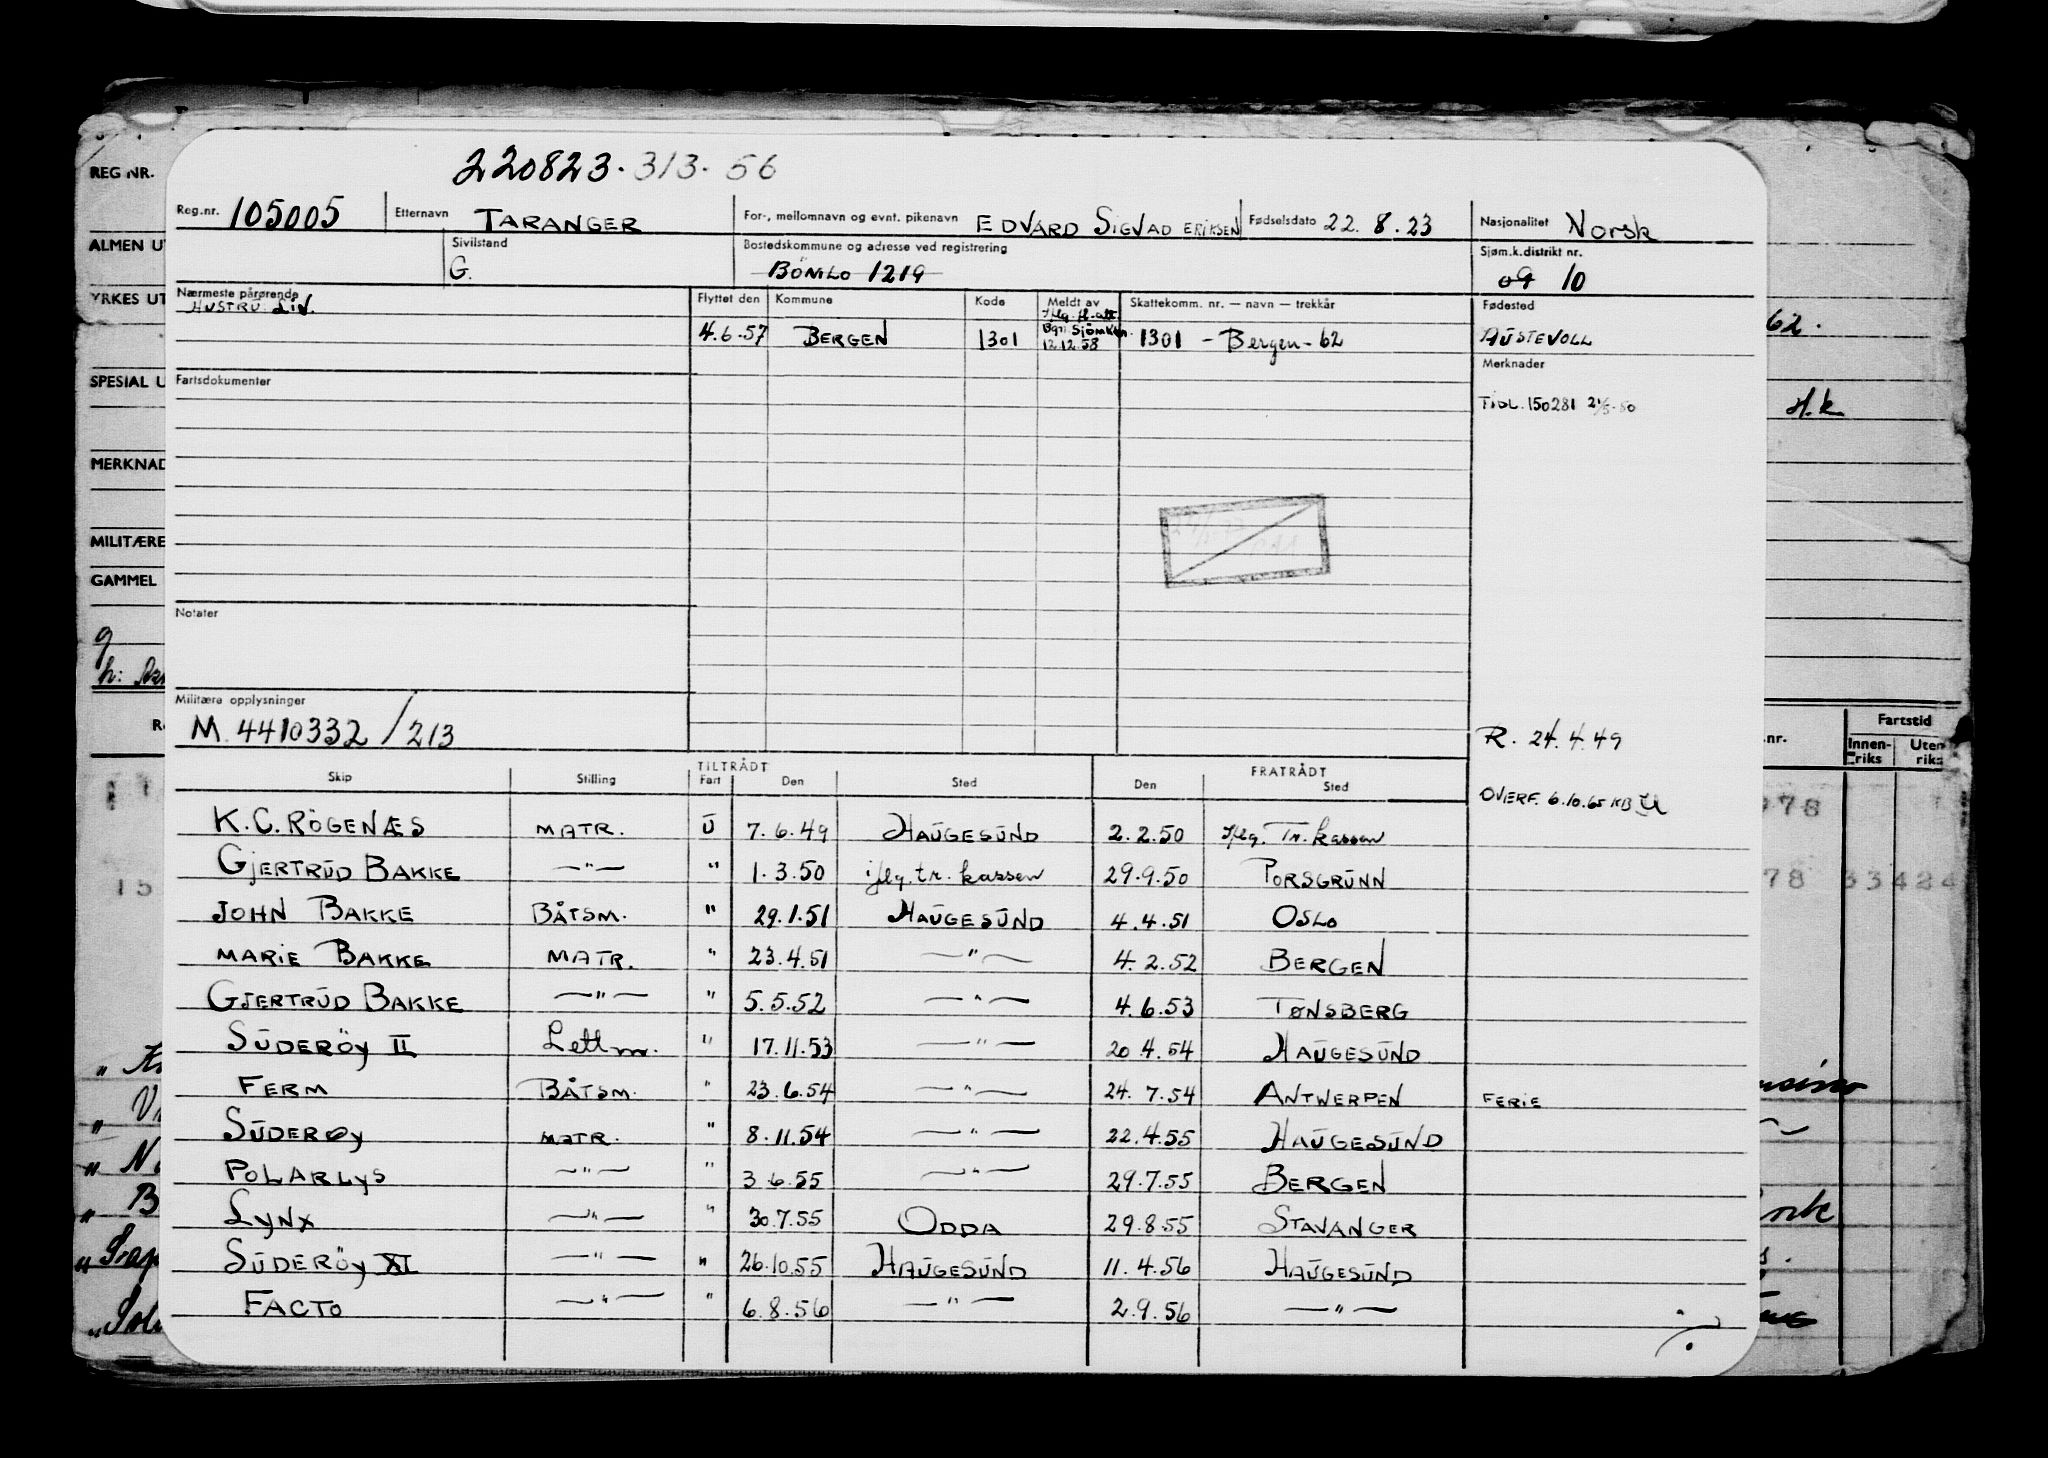 220823.313.56
Reg.nr. 105005 Etternavn TARANGER For-, mellomnavn og evnt. pikenavn EDVARD SIGVAD ERIKSEN Fødselsdato 22.8.23 Nasjonalitet Norsk
Sivilstand G. Bostedskommune og adresse ved registrering BÖMLO 1219 Sjøm.k.distrikt nr. 09 10
Nærmeste pårørende HUSTRU LIV. Flyttet den Kommune Kode Meldt av Skattekomm. nr. — navn — trekkår Fødested
4.6.57 BERGEN 1301 Bgn Sjömktn. 12.12.58 1301 - Bergen - 62 AUSTEVOLL
Merknader
Fartsdokumenter
TIDL. 150281 2/5-50
Notater
Militære opplysninger
M. 4410332/213
R. 24.4.49
TILTRÅDT FRATRÅDT
Skip Stilling Fart Den Sted Den Sted
OVERF. 6.10.65 KB
K.C. RÖGENÆS MATR. U 7.6.49 HAUGESUND 2.2.50 Hlg. Tr. kassen
GJERTRUD BAKKE —"— " 1.3.50 Hlg. tr. kassen 29.9.50 PORSGRUNN
JOHN BAKKE BÅTSM. " 29.1.51 HAUGESUND 4.4.51 OSLO
MARIE BAKKE MATR. " 23.4.51 —"— 4.2.52 BERGEN
GJERTRUD BAKKE —"— " 5.5.52 —"— 4.6.53 TØNSBERG
SUDERÖY II Lettm. " 17.11.53 —"— 20.4.54 HAUGESUND
FERM BÅTSM. " 23.6.54 —"— 24.7.54 ANTWERPEN FERIE
SUDERØY MATR. " 8.11.54 —"— 22.4.55 HAUGESUND
POLARLYS —"— " 3.6.55 —"— 29.7.55 BERGEN
LYNX —"— " 30.7.55 ODDA 29.8.55 STAVANGER
SUDERÖY XI —"— " 26.10.55 HAUGESUND 11.4.56 HAUGESUND
FACTO —"— " 6.8.56 —"— 2.9.56 —"—
REG NR.
ALMEN UT
YRKES UT
62.
SPESIAL U
H.k
MERKNAD
MILITÆRE
GAMMEL
g
h:
.nr. Fartstid
Innen-riks Uten riks
978
15
78 33424